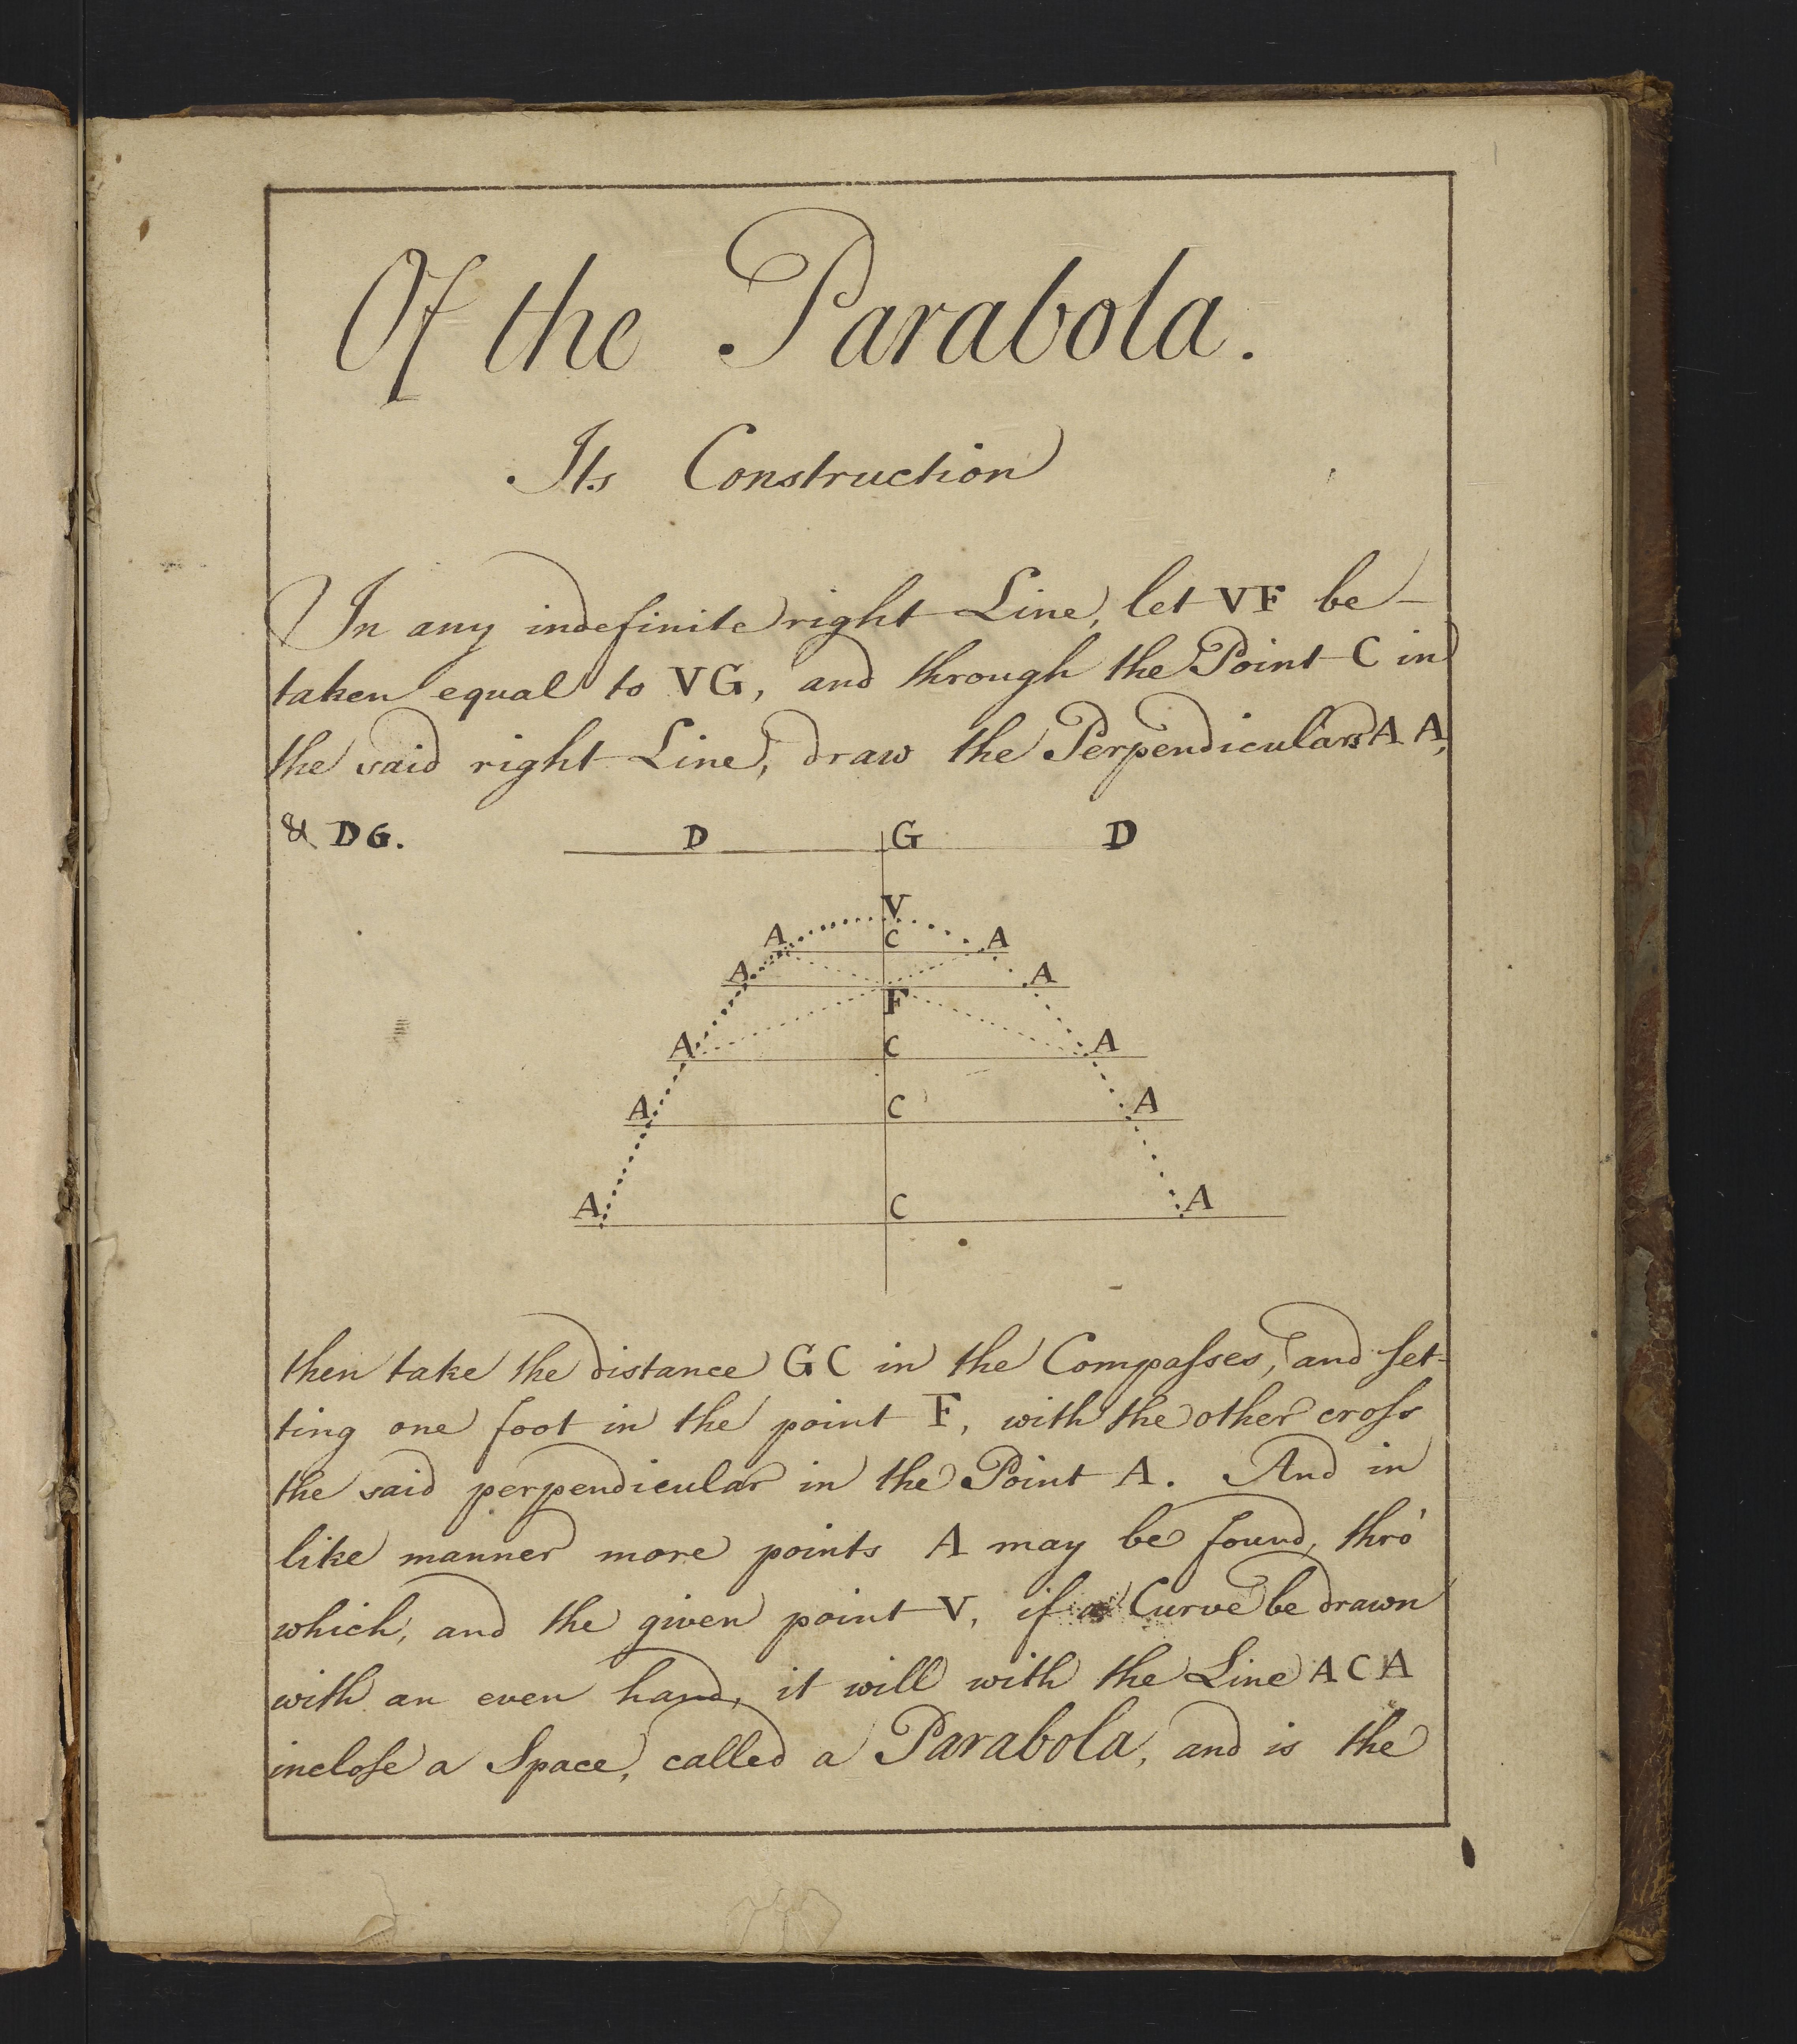 Of the Parabola.
Its Construction
In any indefinite right Line, let VF be
taken equal to VG, and through the Point C in
the said right Line, draw the Perpendiculars A A,
& DG.
D G D
V
A C A
A A
F
A C A
A C A
A C A
then take the distance GC in the Compaſses, and ſet-
ting one foot in the point F, with the other croſs
the said perpendicular in the Point A. And in
like manner more points A may be found, thro'
which, and the given point V, if a Curve be drawn
with an even hand, it will with the Line ACA
incloſe a Space, called a Parabola, and is the